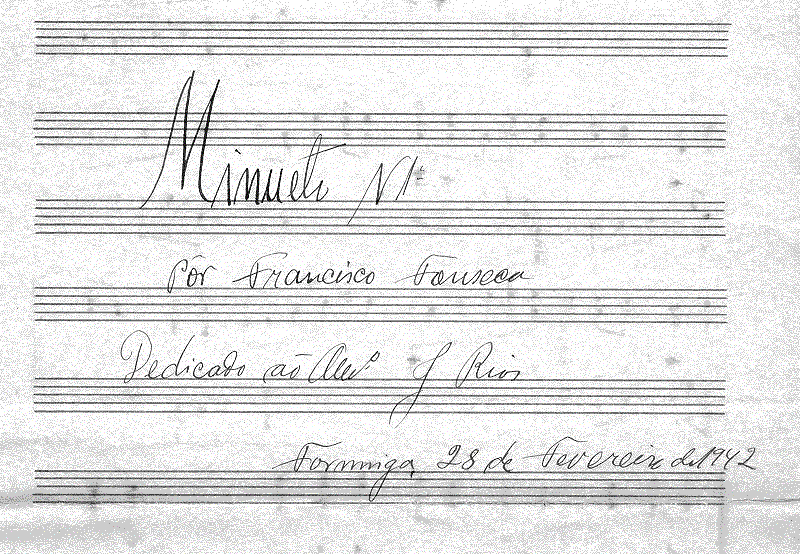 Minueto Nº 1
Pôr Francisco Fonseca
Dedicado aõ J Rios
Formiga, 28 de Fevereiro de 1942